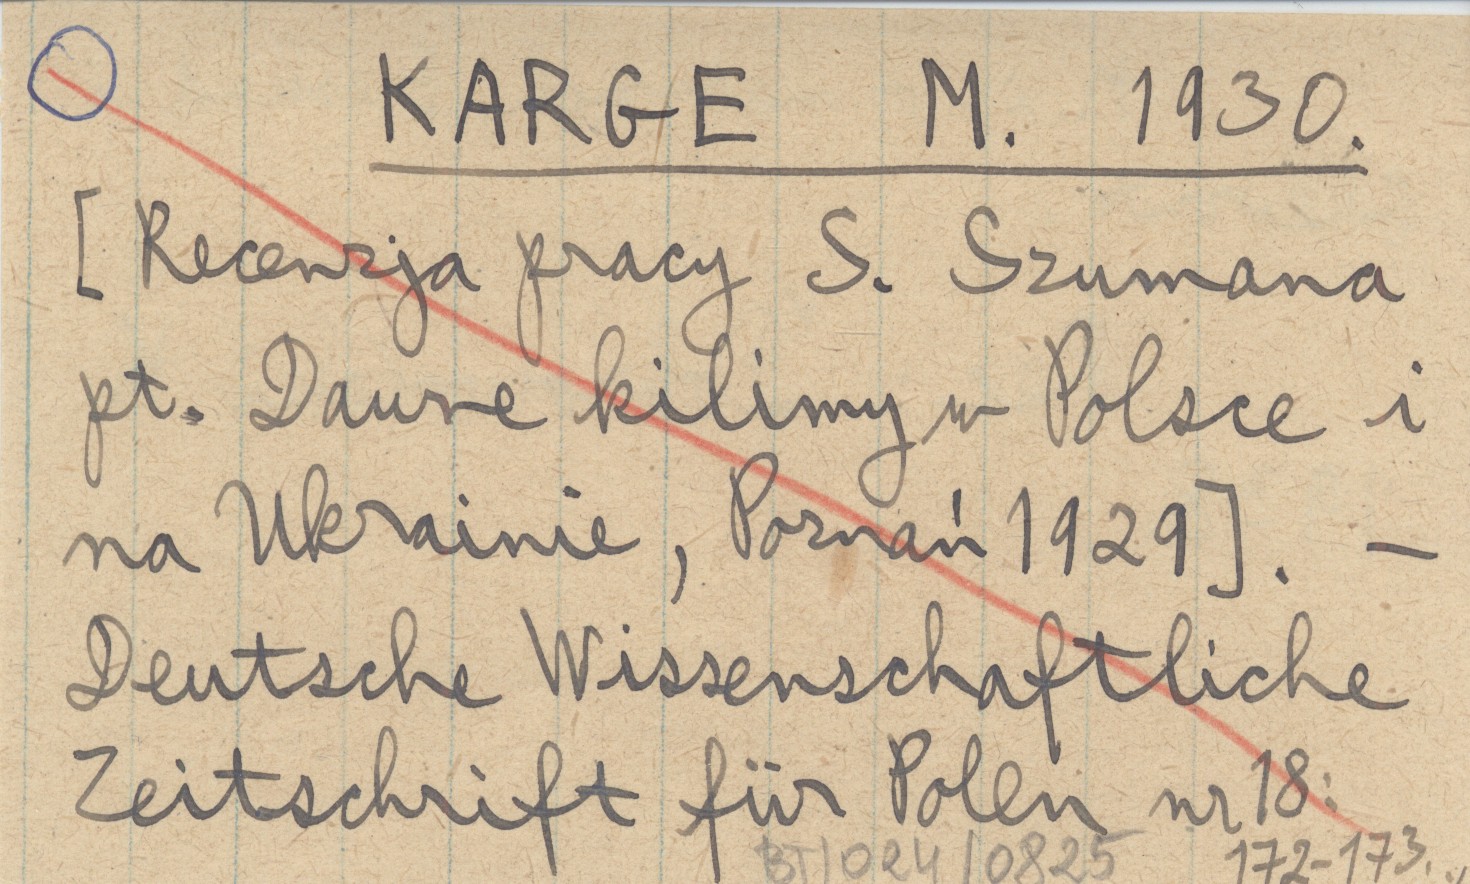 KARGE M. 1930.
[Recenzja pracy S. Szumana
pt. Dawne kilimy w Polsce i
na Ukrainie, Poznań 1929]. —
Deutsche Wissenschaftliche
Zeitschrift für Polen nr 18:
172-173.
BT/024/0825